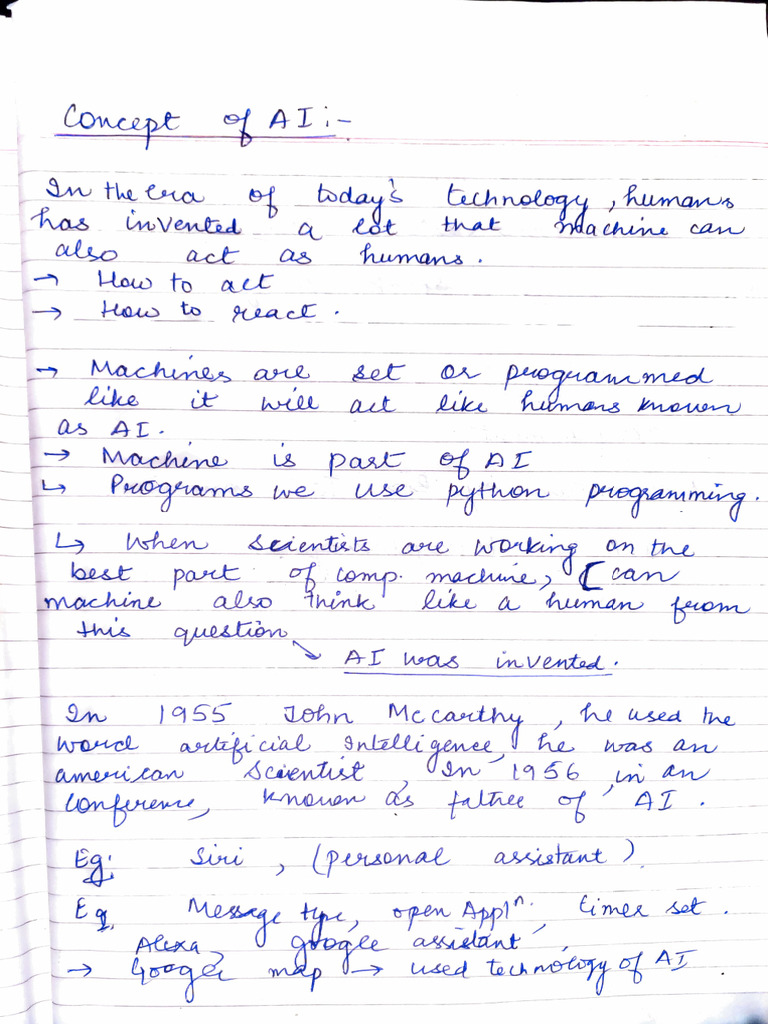 Concept of AI :-
In the era of today's technology, humans
has invented a lot that machine can
also act as humans.
→ How to act
→ How to react.
→ Machines are set or programmed
like it will act like humans known
as AI.
→ Machine is part of AI
↳ Programs we use python programming.
↳ When scientists are working on the
best part of comp. machine, [can
machine also think like a human from
this question
↘ AI was invented.
In 1955 John Mccarthy, he used the
word artificial Intelligence, he was an
american Scientist, In 1956, in an
conference, known as of AI.
Eg; Siri, (personal assistant)
Eg, Message type, open Appln., timer set.
Alexa, google assistant
→ Google map → used technology of AI